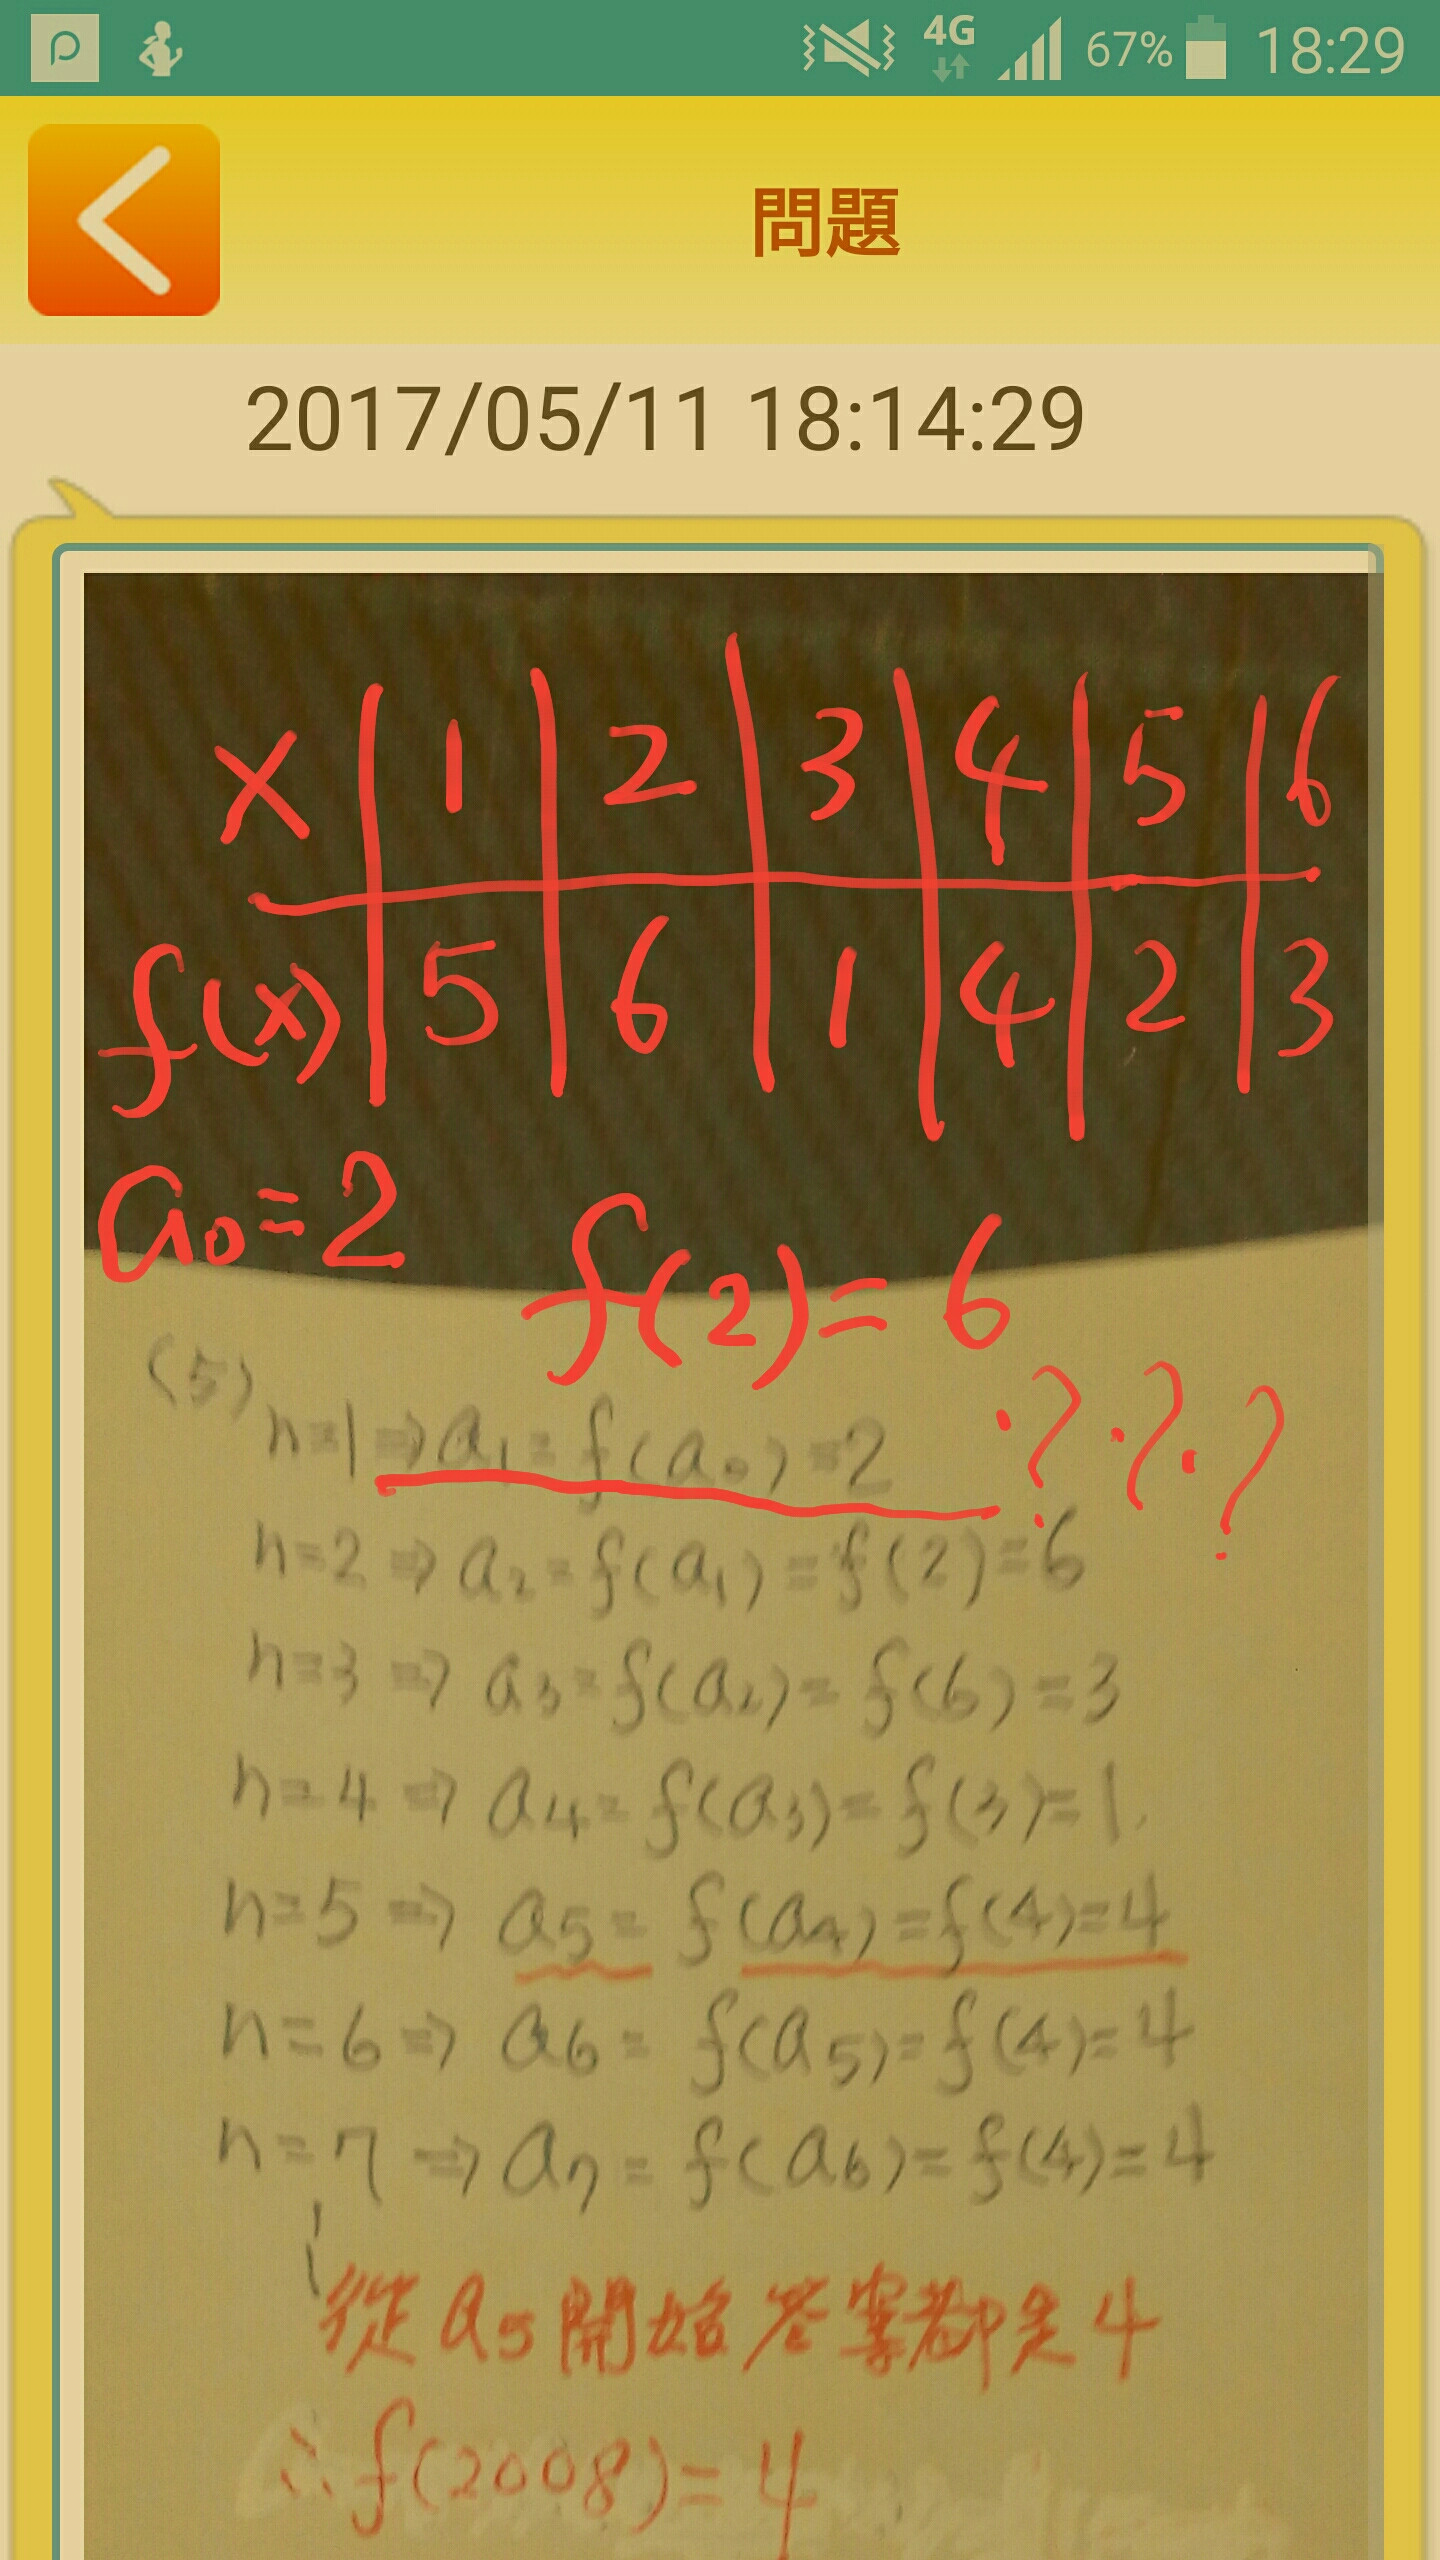 4G 67% 18:29
問題
2017/05/11 18:14:29
x 1 2 3 4 5 6
f(x) 5 6 1 4 2 3
a₀=2 f(2)=6
(5)
n=1⇒a₁=f(a₀)=2 ???
n=2⇒a₂=f(a₁)=f(2)=6
n=3⇒a₃=f(a₂)=f(6)=3
n=4⇒a₄=f(a₃)=f(3)=1
n=5⇒a₅=f(a₄)=f(4)=4
n=6⇒a₆=f(a₅)=f(4)=4
n=7⇒a₇=f(a₆)=f(4)=4
從a₅開始答案都是4
∴f(2008)=4